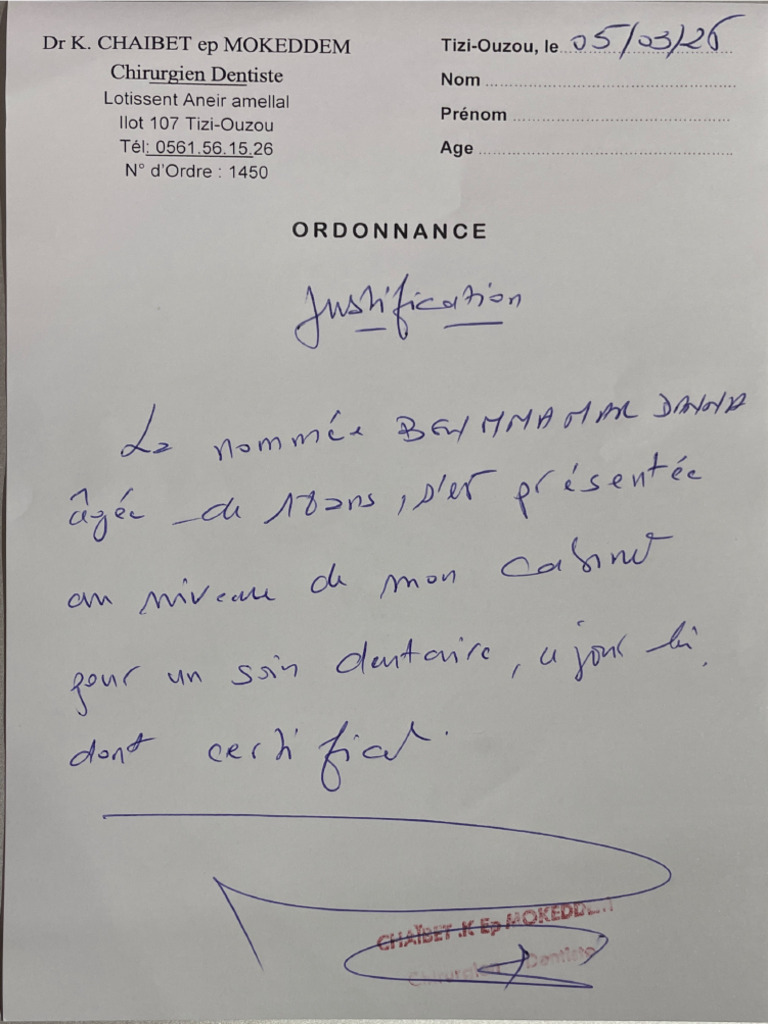 Dr K. CHAIBET ep MOKEDDEM
Chirurgien Dentiste
Lotissent Aneir amellal
Ilot 107 Tizi-Ouzou
Tél: 0561.56.15.26
N° d'Ordre : 1450
Tizi-Ouzou, le 05/03/26
Nom
Prénom
Age
ORDONNANCE
Justification
La nommée
âgée de 18 ans, s'est présentée
au niveau de mon cabinet
pour un soin dentaire, ce jour
dont certificat.
CHAÏBET .K Ep MOKEDDEM
Chirurgien Dentiste